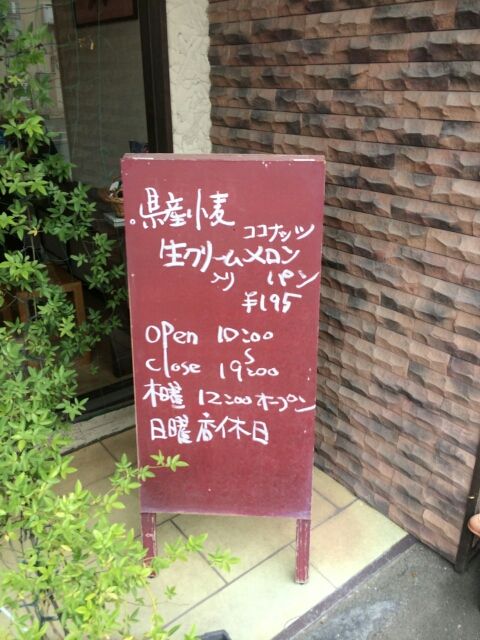 。県産小麦
ココナッツ
生クリームメロン
入り パン
¥195
open 10:00
s
close 19:00
木曜 12:00オープン
日曜店休日